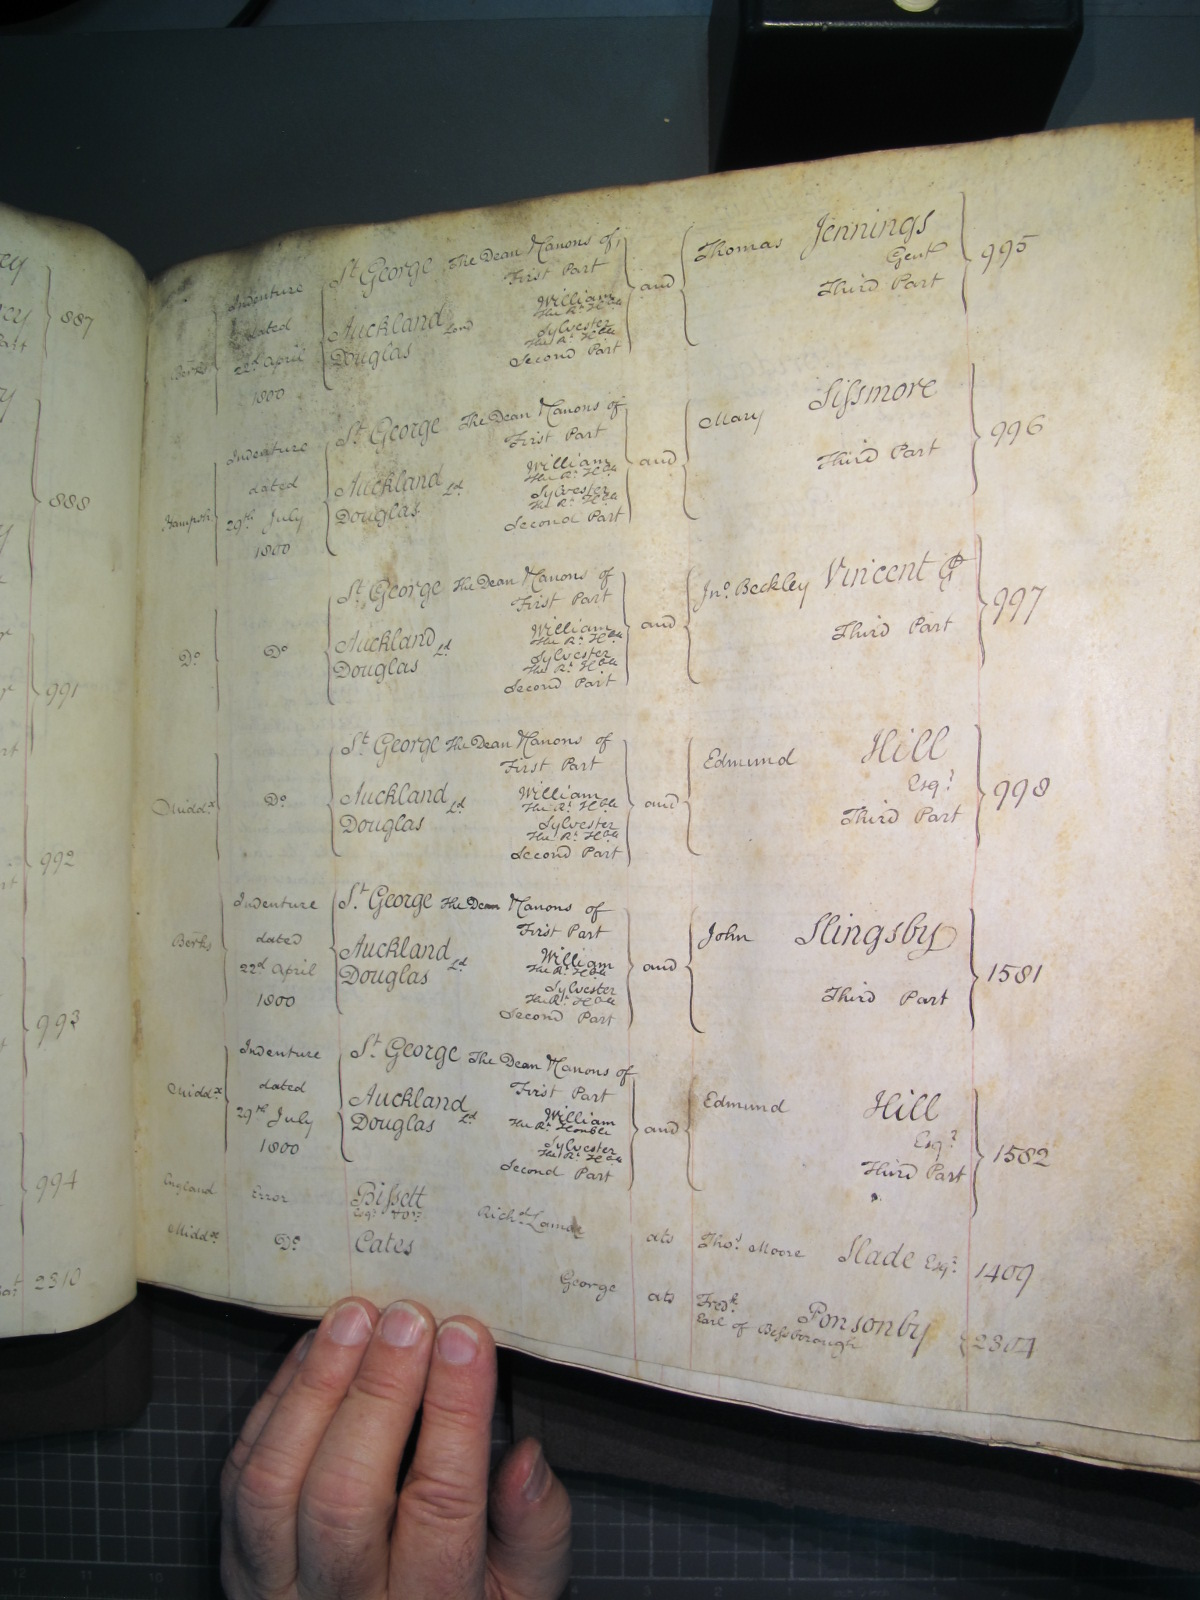 887
888
991
992
993
994
2310
Berks
Indenture
dated
22d April
1800
St George The Dean & Canons of
First Part
Auckland Lord
William
The Rt Hble
Douglas
Sylvester
The Rt Hble
Second Part
and
Thomas Jennings
Gent
Third Part
995
Hampsh
Indenture
dated
29th July
1800
St George The Dean & Canons of
First Part
Auckland Ld
William
The Rt Hble
Douglas
Sylvester
The Rt Hble
Second Part
and
Mary Sissmore
Third Part
996
Do
Do
St George The Dean & Canons of
First Part
Auckland Ld
William
The Rt Hble
Douglas
Sylvester
The Rt Hble
Second Part
and
Jno. Beckley Vincent Gt
Third Part
997
Middx
Do
St George The Dean & Canons of
First Part
Auckland Ld
William
The Rt Hble
Douglas
Sylvester
The Rt Hble
Second Part
and
Edmund Hill
Esqr
Third Part
998
Berks
Indenture
dated
22d April
1800
St George The Dean & Canons of
First Part
Auckland Ld
William
The Rt Hble
Douglas
Sylvester
The Rt Hble
Second Part
and
John Slingsby
Third Part
1581
Middx
Indenture
dated
29th July
1800
St George The Dean & Canons of
First Part
Auckland Ld
William
The Rt Honble
Douglas
Sylvester
The Rt Hble
Second Part
and
Edmund Hill
Esqr
Third Part
1582
England Error Bissett
Richd Lamar ats Thos Moore Slade Esqr 1409
Middx Do Cates
George ats Fredk Ponsonby
Earl of Bessborough